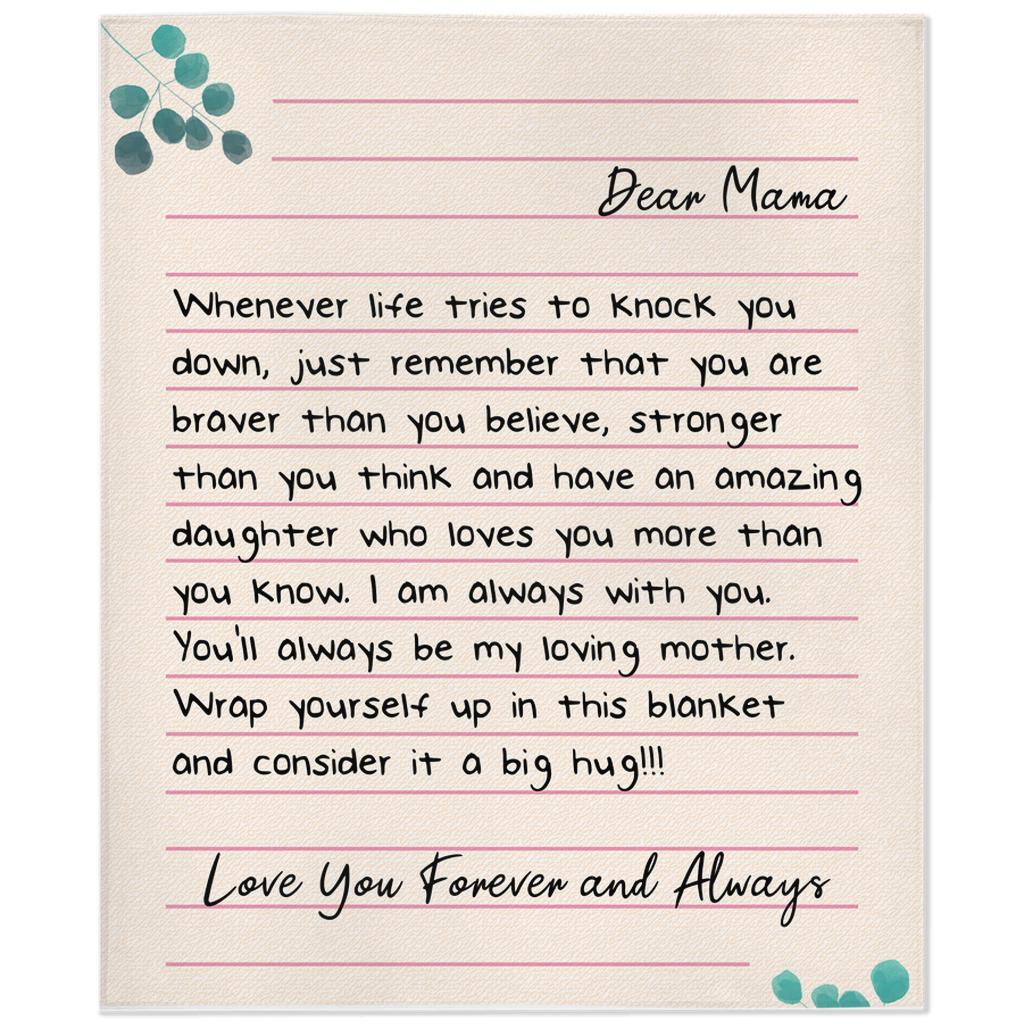 Dear Mama
Whenever life tries to knock you
down, just remember that you are
braver than you believe, stronger
than you think and have an amazing
daughter who loves you more than
you know. I am always with you.
You'll always be my loving mother.
Wrap yourself up in this blanket
and consider it a big hug!!!
Love You Forever and Always